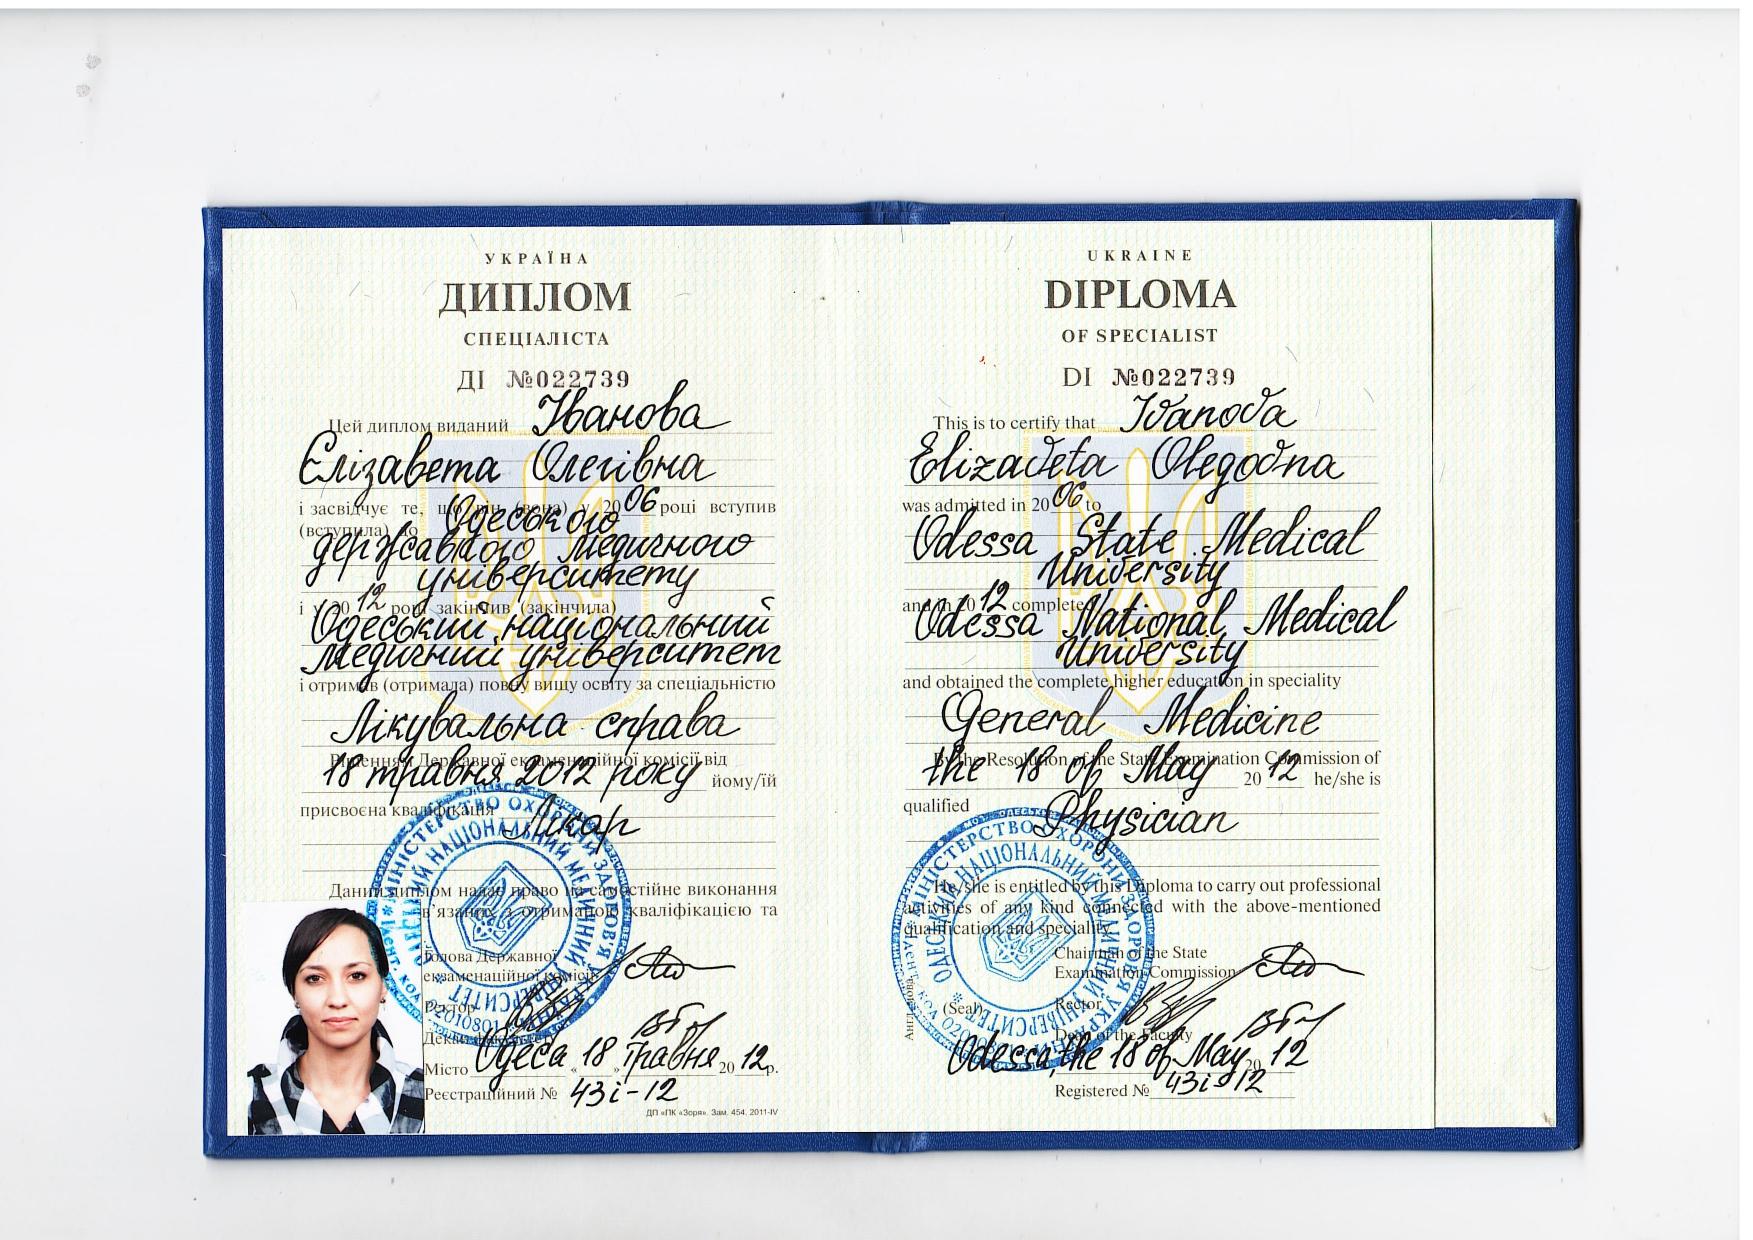 УКРАЇНА
ДИПЛОМ
СПЕЦІАЛІСТА
ДІ №022739
Цей диплом виданий Іванова
Єлізавета Олегівна
і засвідчує те, що він (вона) у 2006 році вступив
(вступила) до Одеського
державного медичного
університету
і у 2012 році закінчив (закінчила)
Одеський національний
медичний університет
і отримав (отримала) повну вищу освіту за спеціальністю
Лікувальна справа
Рішенням Державної екзаменаційної комісії від
18 травня 2012 року йому/їй
присвоєна кваліфікація Лікар
Даний диплом надає право на самостійне виконання
з отриманою кваліфікацією та
Голова Державної
екзаменаційної комісії
Ректор
Декан факультету
Місто Одеса «18» травня 2012р.
Реєстраційний № 43і-12
ДП «ПК «Зоря». Зам. 454. 2011-IV
МІНІСТЕРСТВО ОХОРОНИ ЗДОРОВ'Я УКРАЇНИ
ОДЕСЬКИЙ НАЦІОНАЛЬНИЙ МЕДИЧНИЙ УНІВЕРСИТЕТ
UKRAINE
DIPLOMA
OF SPECIALIST
DI №022739
This is to certify that Ivanova
Elizaveta Olegovna
was admitted in 2006 to
Odessa State Medical
University
and in 2012 completed
Odessa National Medical
University
and obtained the complete higher education in speciality
General Medicine
By the Resolution of the State Examination Commission of
the 18 of May 2012 he/she is
qualified Physician
He/she is entitled by this Diploma to carry out professional
activities of any kind connected with the above-mentioned
qualification and speciality.
Chairman of the State
Examination Commission
(Seal) Rector
Dean of the Faculty
Odessa, the 18 of May 2012
Registered № 43i-12
МІНІСТЕРСТВО ОХОРОНИ ЗДОРОВ'Я УКРАЇНИ
ОДЕСЬКИЙ НАЦІОНАЛЬНИЙ МЕДИЧНИЙ УНІВЕРСИТЕТ